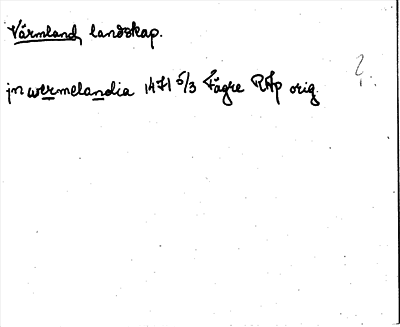 Värmland, landskap.
?
jn wermelandia 1471 5/3 Fägre RAp orig.